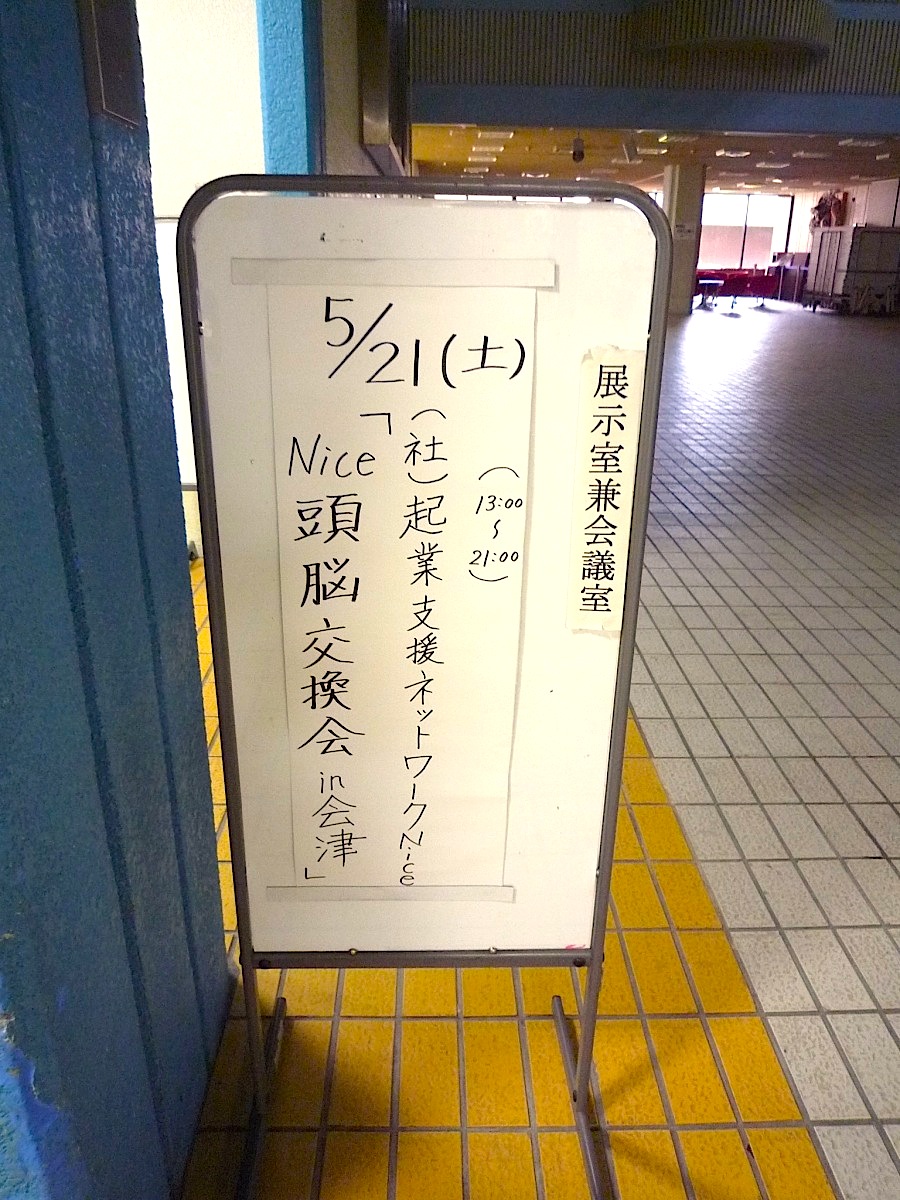 展示室兼会議室
5/21(土)
(13:00〜21:00)
(社)起業支援ネットワークNice
「Nice頭脳交換会in会津」